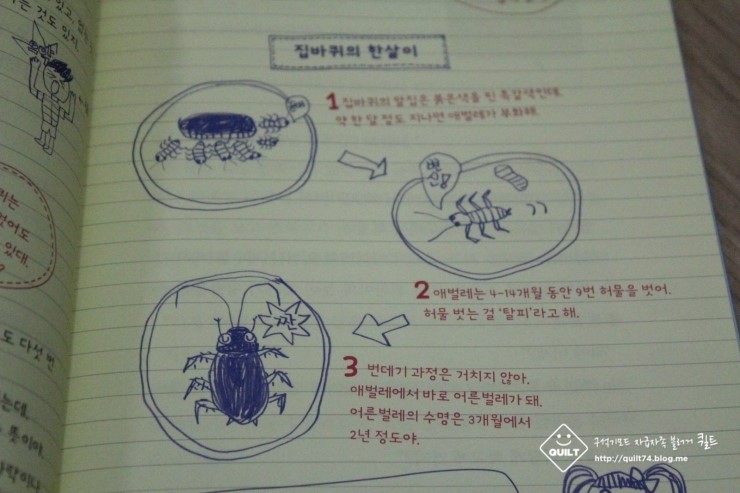 는 것도 있지.
집바퀴의 한살이
1 집바퀴의 알집은 붉은색을 띤 흑갈색인데,
약 한 달 정도 지나면 애벌레가 부화해.
2 애벌레는 4~14개월 동안 9번 허물을 벗어.
허물 벗는 걸 '탈피'라고 해.
짠
3 번데기 과정은 거치지 않아.
애벌레에서 바로 어른벌레가 돼.
어른벌레의 수명은 3개월에서
2년 정도야.
있대.
도 다섯 번
는데.
뜻이야.
QUILT
구석기모드 자급자족 블로거 퀼트
http://quilt74.blog.me